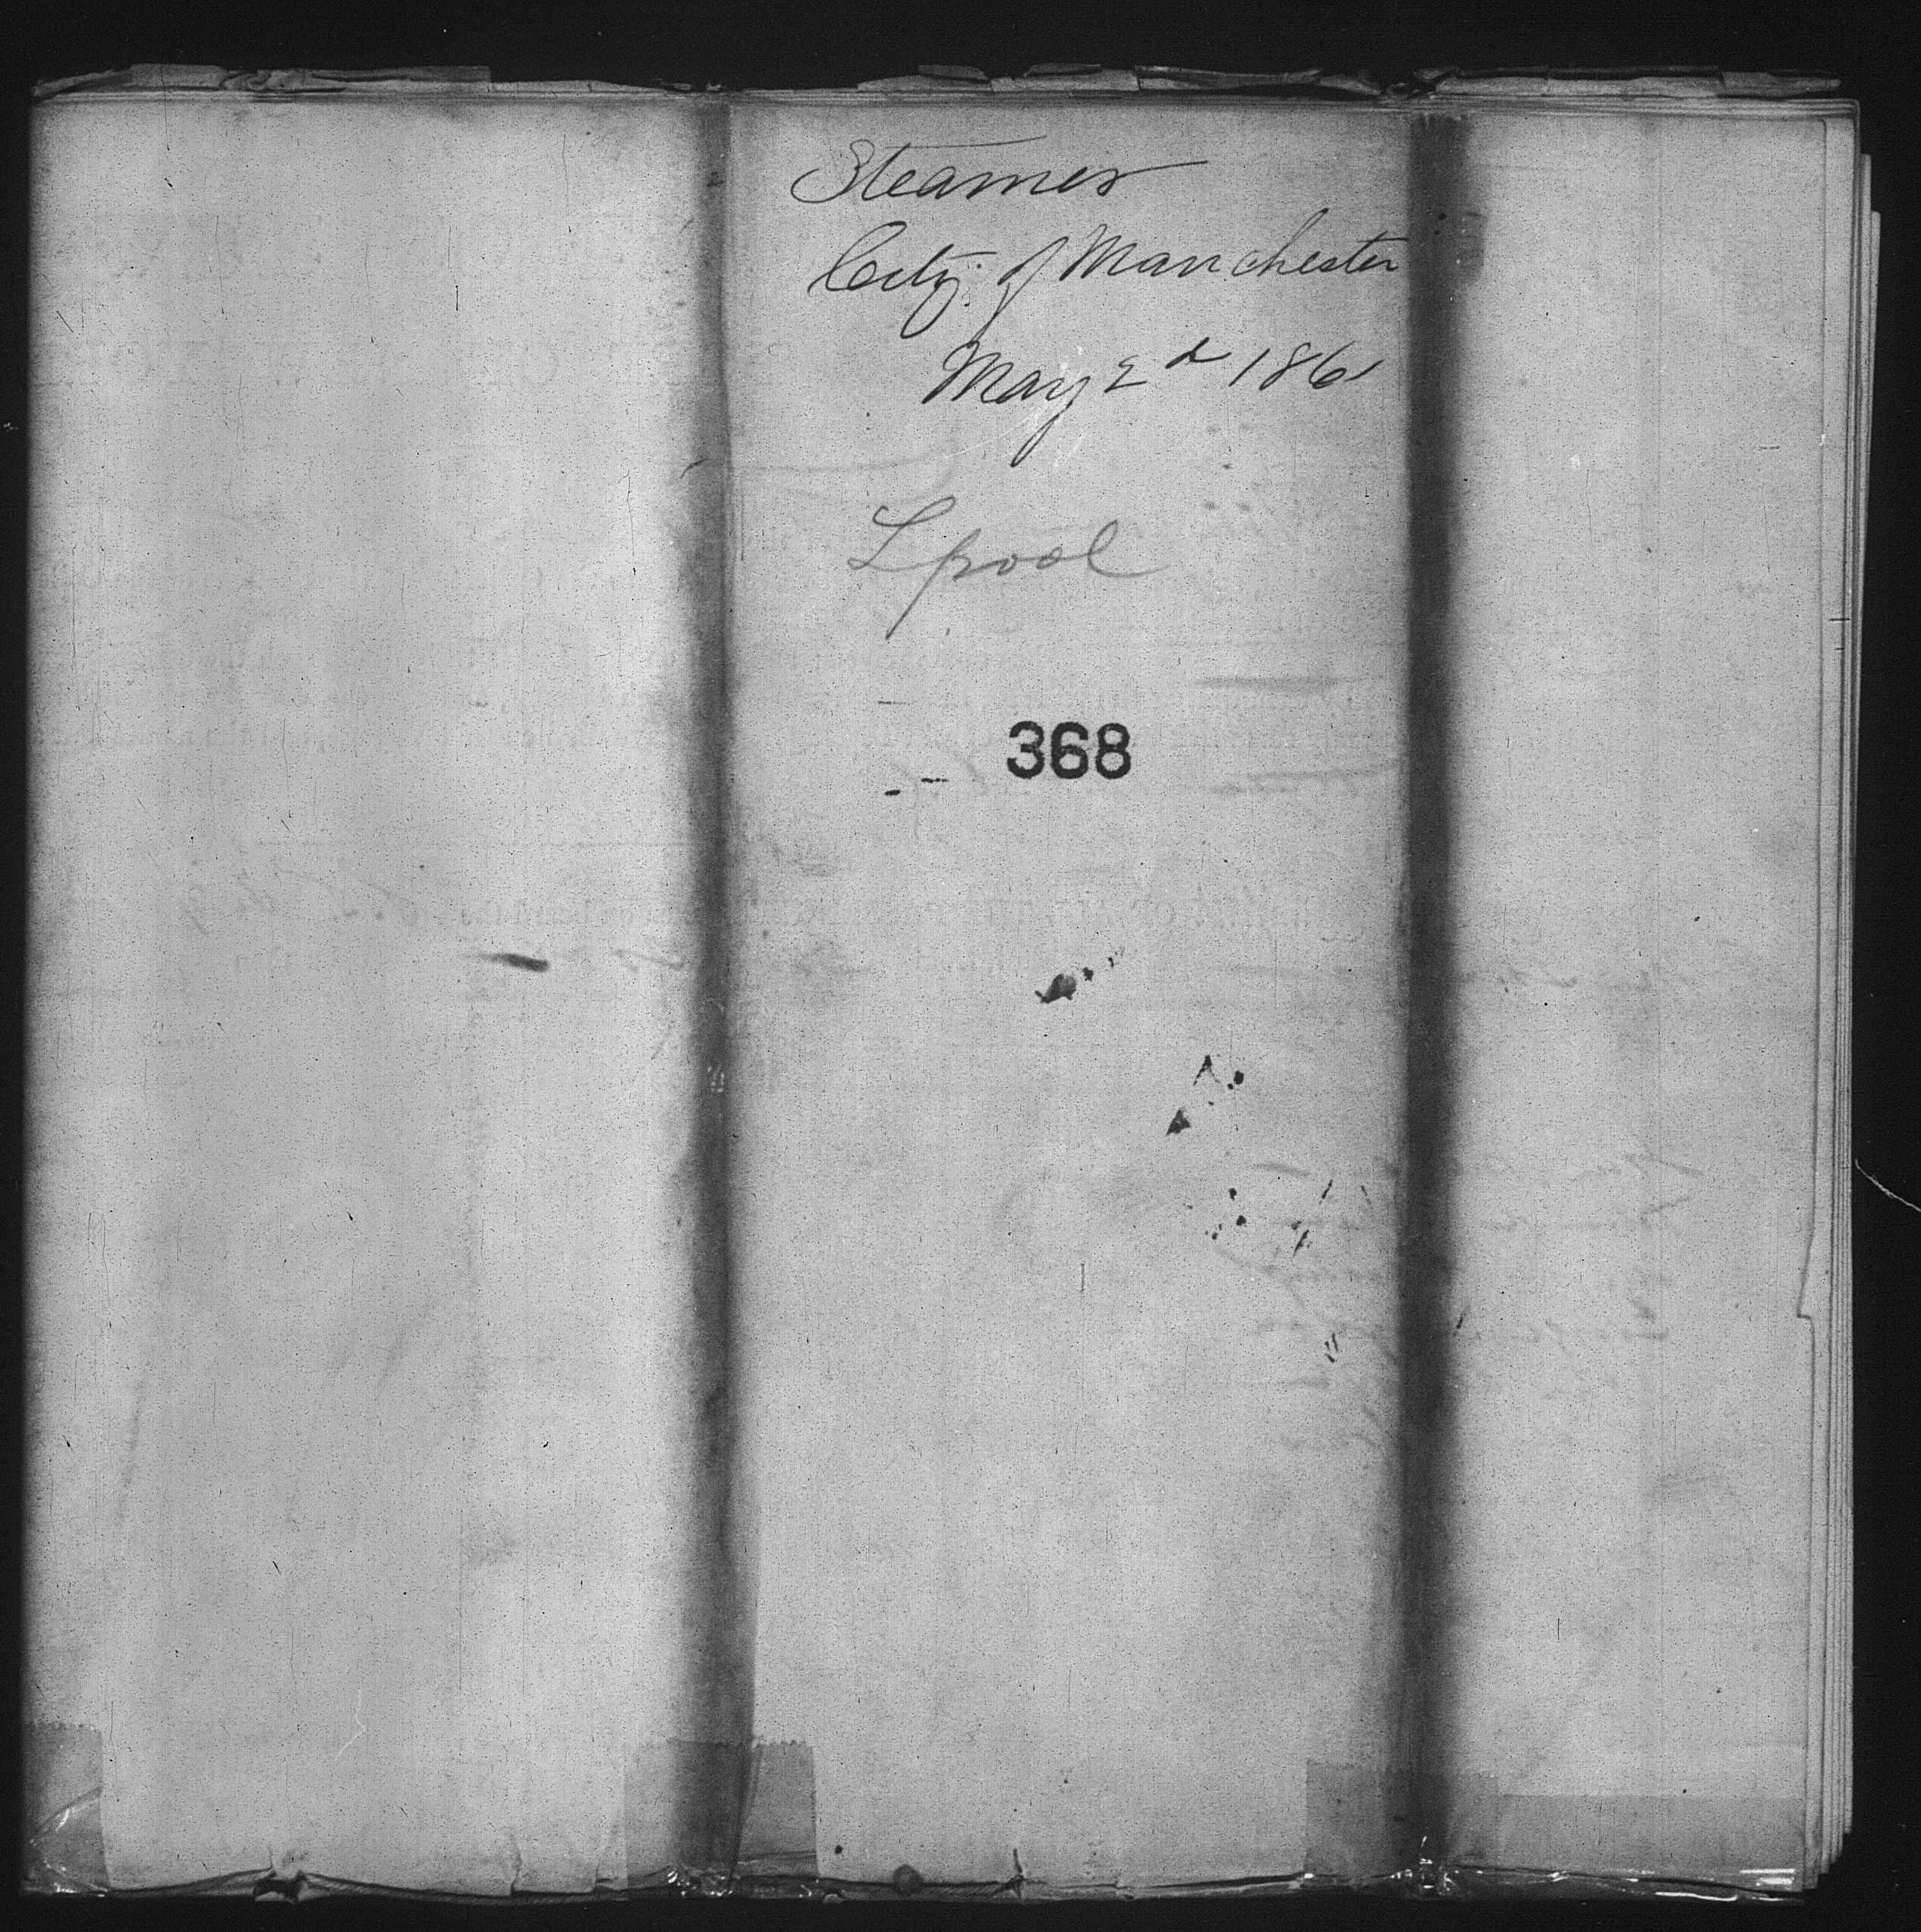 Steamer
City of Manchester
May 2d 1861
Lpool
368